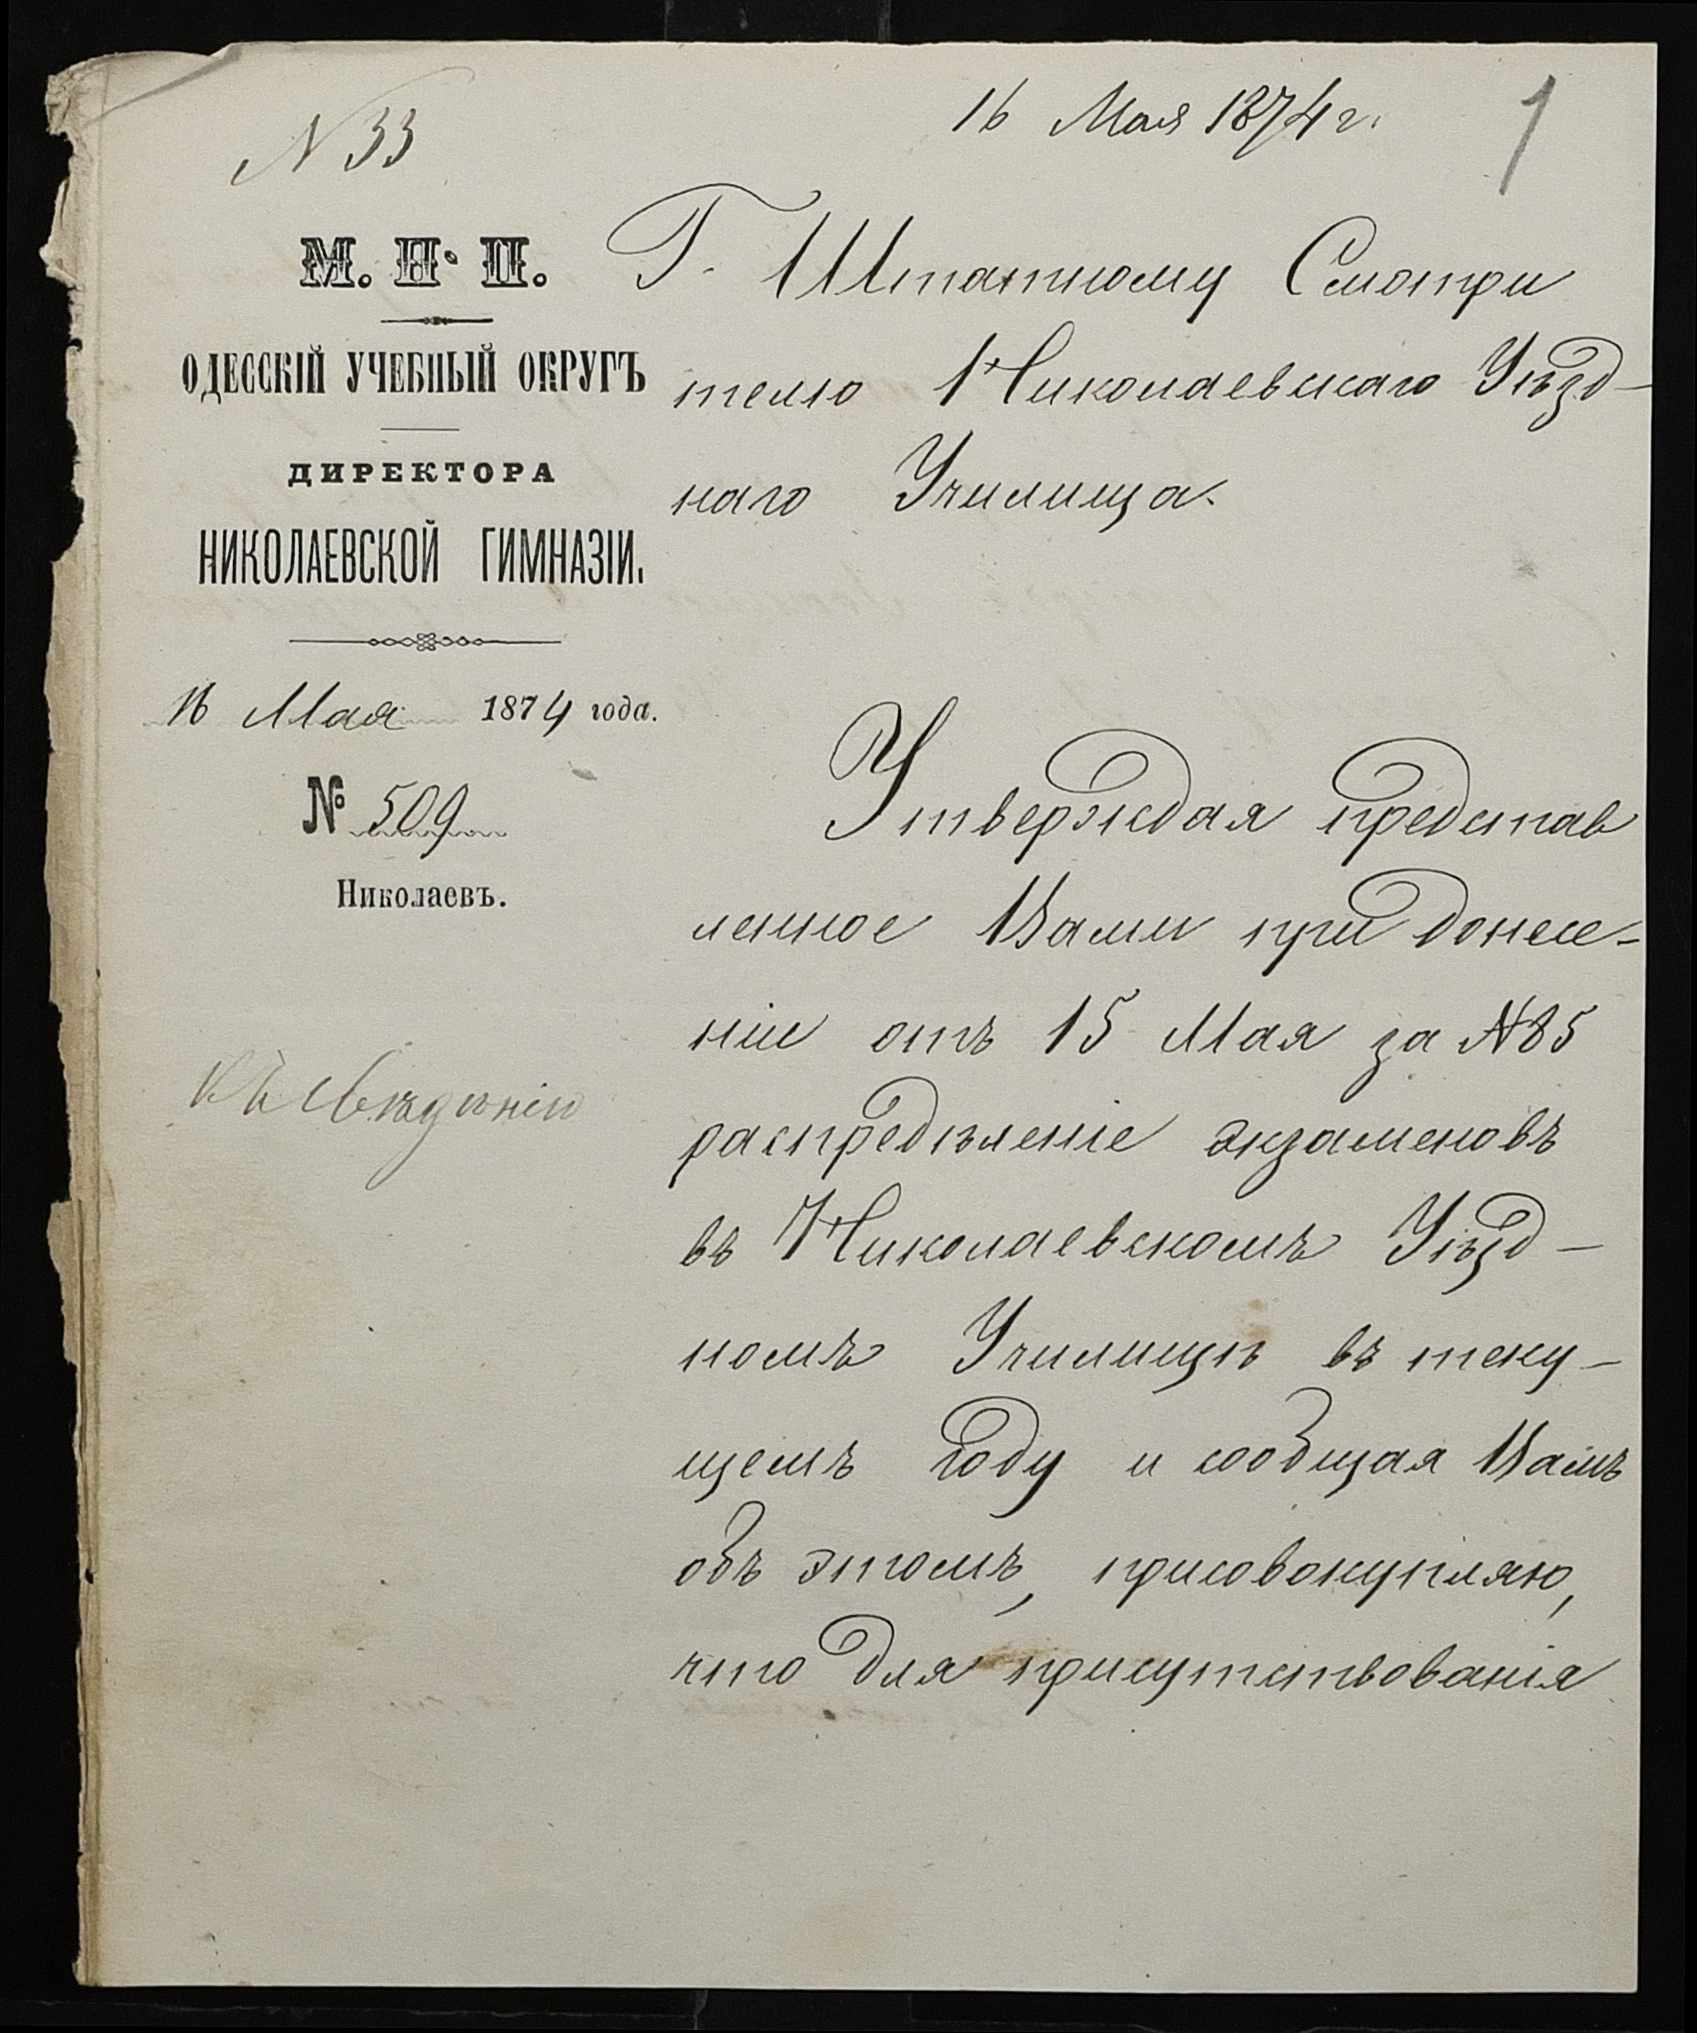 16 Мая 1874 г.
1
N 33
М. Н. П.
ОДЕССКІЙ УЧЕБНЫЙ ОКРУГЪ
ДИРЕКТОРА
НИКОЛАЕВСКОЙ ГИМНАЗІИ.
16 Мая 1874 года.
№ 509
Николаевъ.
Къ свѣдѣнію
Г. Штатному Смотри
телю Николаевскаго Уѣзд-
наго Училища.
Утверждая представ
ленное Вами при донесе-
ніи отъ 15 Мая за N 85
распредѣленіе экзаменовъ
въ Николаевскомъ Уѣзд-
номъ Училищѣ въ теку-
щемъ году и сообщая Вамъ
объ этомъ, присовокупляю,
что для присутствованія